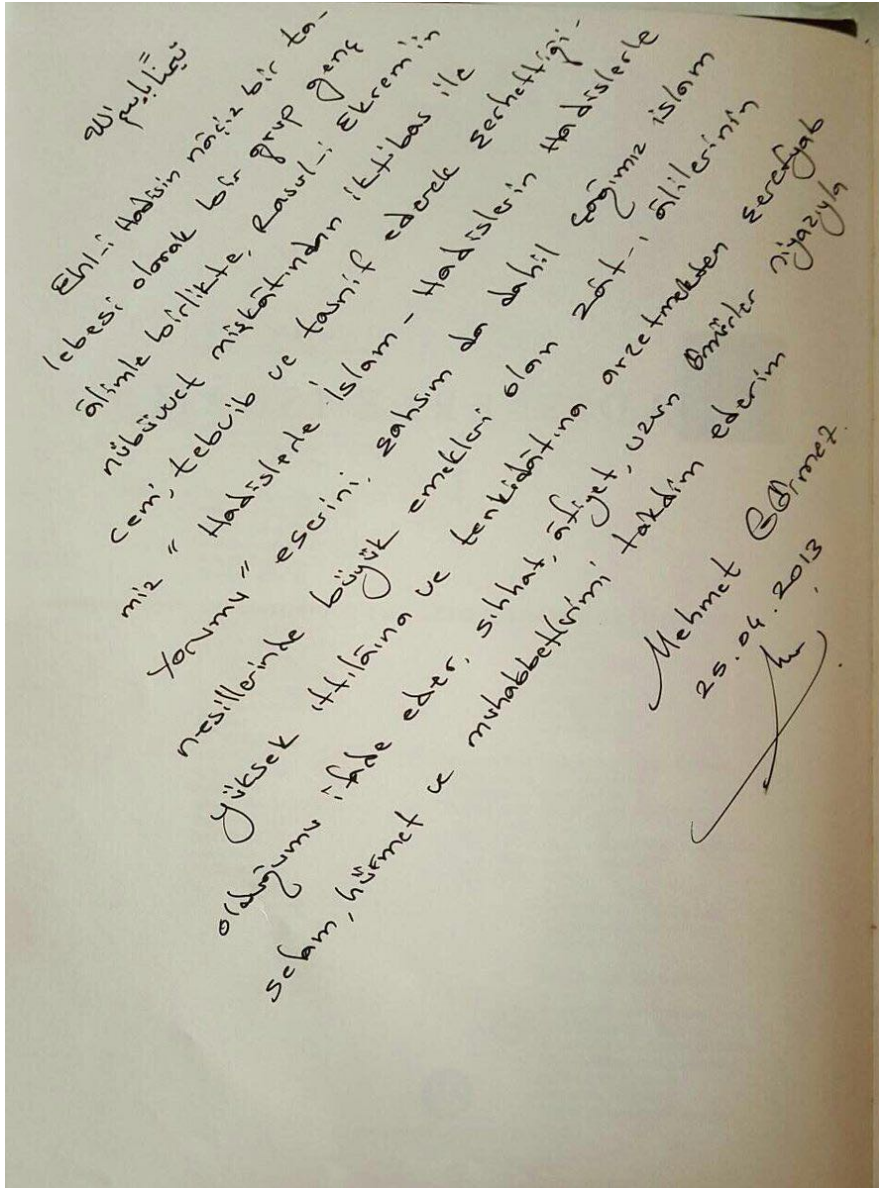 تيمّناً باسم الله
Ehl-i Hadisin nâçiz bir ta-
lebesi olarak bir grup genç
âlimle birlikte, Rasul-i Ekrem'in
nübüvvet mişkâtından iktibas ile
cem', tebvib ve tasnif ederek şerhettiği-
miz "Hadislerle İslam - Hadislerin Hadislerle
Yorumu" eserini, şahsım da dahil çağımız islam
nesillerinde büyük emekleri olan zât-ı âlilerinin
yüksek ıttılâına ve tenkidâtına arzetmekten şerefyab
olduğumu ifade eder, sıhhat, âfiyet, uzun ömürler niyazıyla
selam, hürmet ve muhabbetlerimi takdim ederim
Mehmet Görmez
25.04.2013